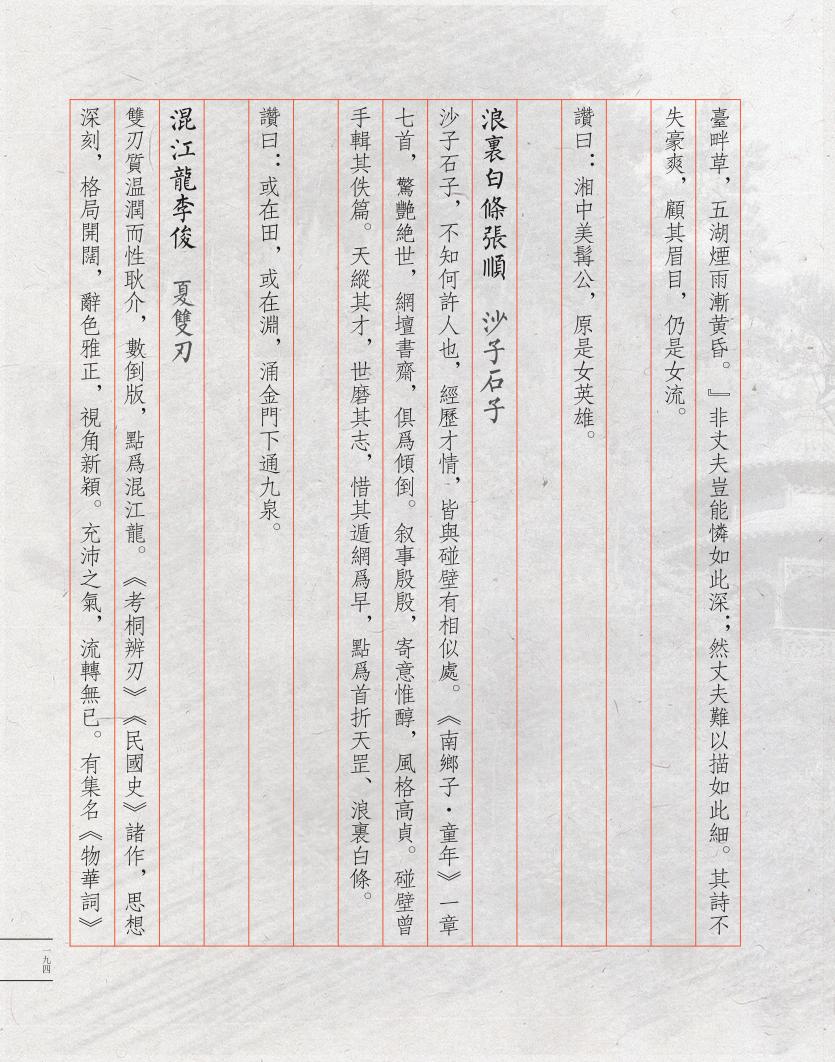 臺畔草，五湖煙雨漸黃昏。』非丈夫豈能憐如此深；然丈夫難以描如此細。其詩不
失豪爽，顧其眉目，仍是女流。
讚曰：湘中美髯公，原是女英雄。
浪裏白條張順　沙子石子
沙子石子，不知何許人也，經歷才情，皆與碰壁有相似處。《南鄉子·童年》一章
七首，驚艷絕世，網壇書齋，俱爲傾倒。叙事殷殷，寄意惟醇，風格高貞。碰壁曾
手輯其佚篇。天縱其才，世磨其志，惜其遁網爲早，點爲首折天罡、浪裏白條。
讚曰：或在田，或在淵，涌金門下通九泉。
混江龍李俊　夏雙刃
雙刃質温潤而性耿介，數倒版，點爲混江龍。《考桐辨刃》《民國史》諸作，思想
深刻，格局開闊，辭色雅正，視角新穎。充沛之氣，流轉無已。有集名《物華詞》
一九四